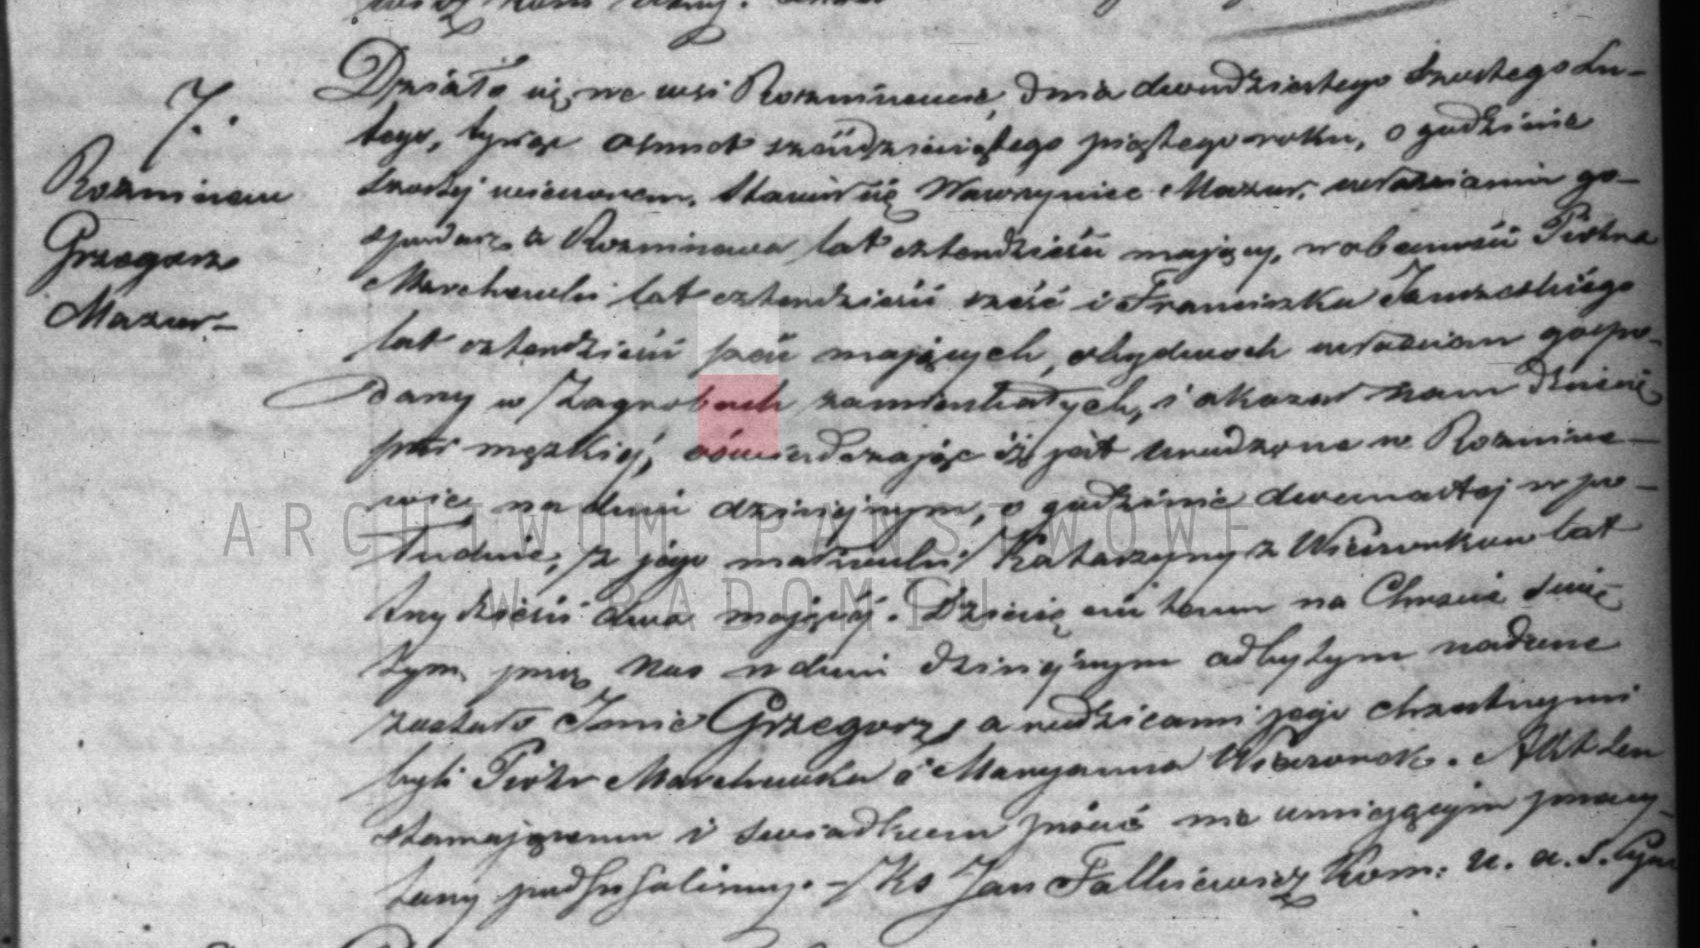 7.
Rozminow
Grzegorz
Mazur
Działo się we wsi Rozminowie, dnia dwudziestego szóstego Lu-
tego, tysiąc ośmset sześdziesiątego piątego roku, o godzinie
szóstej wieczorem. Stawił się Wawrzyniec Mazur, włościanin go-
spodarz z Rozminowa lat czterdzieści mający, w obecności Piotra
Marchewki lat czterdzieści sześć i Franciszka
lat czterdzieści sześć mających, obydwoch włościan gospo-
darzy w Zagrobach zamieszkałych, i okazał nam Dziecię
płci męzkiej, oświadczając iż jest urodzone w Rozmino-
wie, na dniu dzisiejszym, o godzinie dwunastej w po-
łudnie, z jego małżonki Katarzyny z Wieczorków lat
trzydzieści dwa mającej. Dziecięciu temu na Chrzcie Swię-
tym, przez Nas w dniu dzisiejszym odbytym nadane
zostało Imie Grzegorz, a rodzicami jego chrzestnymi
byli Piotr Marchewka i Maryanna Wieczorek. Akt ten
stawającemu i swiadkom pisać nie umiejącym przeczy-
tany podpisaliśmy. Ks Jan Falkiewicz Kom: u. a. s. Cyw
ARCHIWUM PAŃSTWOWE
W RADOMIU